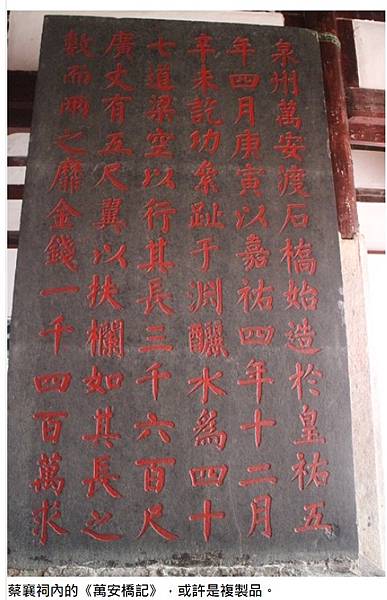 泉州萬安渡石橋始造於皇祐五
年四月庚寅以嘉祐四年十二月
辛未訖功絫趾于淵釃水爲四十
七道梁空以行其長三千六百尺
廣丈有五尺翼以扶欄如其長之
數而兩之靡金錢一千四百萬求
蔡襄祠內的《萬安橋記》，或許是複製品。